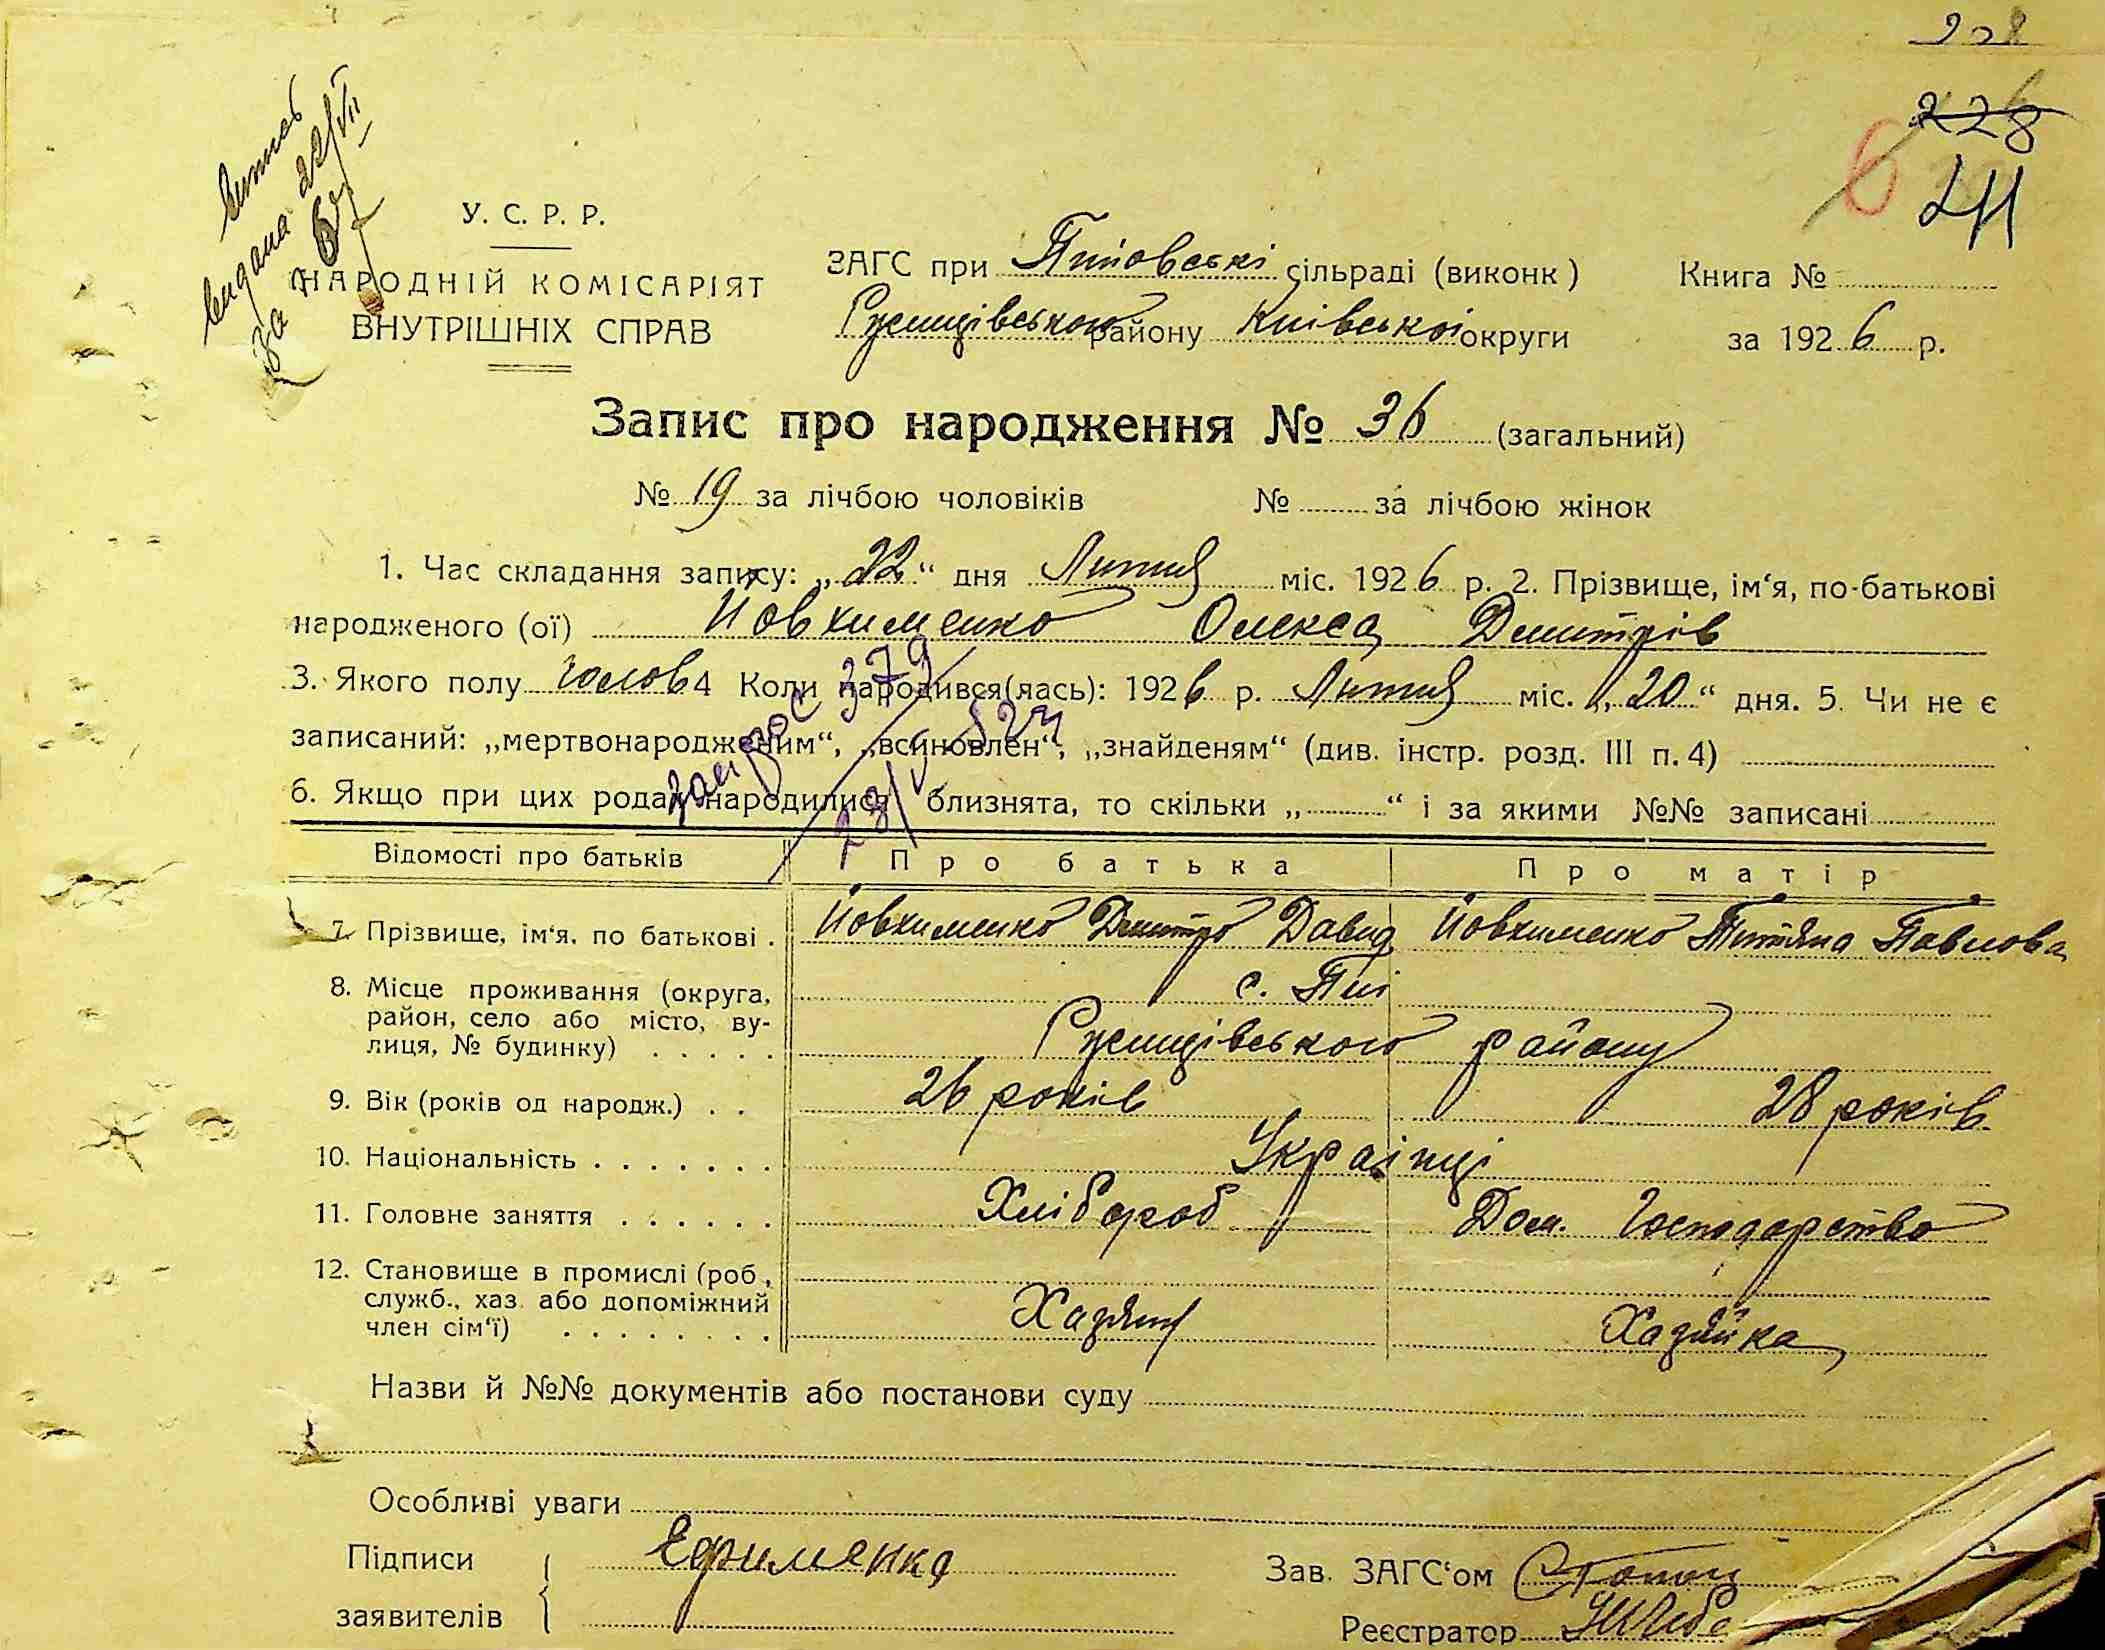 228
6 211
У. С. Р. Р.
НАРОДНІЙ КОМІСАРІЯТ
ВНУТРІШНІХ СПРАВ
видана 22/VII
за №
ЗАГС при Піівські сільраді (виконк)
Ржищівського району Київської округи
Книга №
за 1926 р.
Запис про народження № 36 (загальний)
№ 19 за лічбою чоловіків № за лічбою жінок
1. Час складання запису: „22“ дня Лютня міс. 1926 р. 2. Прізвище, ім‘я, по-батькові
народженого (ої) Йовхименко Олекса Дмитрів
3. Якого полу чолов 4 Коли народився(лась): 1926 р. Лютня міс. „20“ дня. 5. Чи не є
записаний: „мертвонародженим“, „всиновлен“, „знайденям“ (див. інстр. розд. III п. 4)
6. Якщо при цих родах народилися близнята, то скільки „ “ і за якими №№ записані
запрос 379
Відомості про батьків Про батька Про матір
7. Прізвище, ім‘я, по батькові . Йовхименко Дмитро Давид Йовхименко Титяна Павлова
8. Місце проживання (округа, с. Пії
район, село або місто, ву-
лиця, № будинку) . . . . . Ржищівського району
9. Вік (років од народж.) . . 26 років 28 років
10. Національність . . . . . . . Українці
11. Головне заняття . . . . . . Хлібороб Дом. Господарство
12. Становище в промислі (роб.,
служб., хаз. або допоміжний
член сім‘ї) . . . . . . . . Хазяїн Хазяйка
Назви й №№ документів або постанови суду
Особливі уваги
Підписи Ефименко Зав. ЗАГС‘ом
заявителів Реєстратор